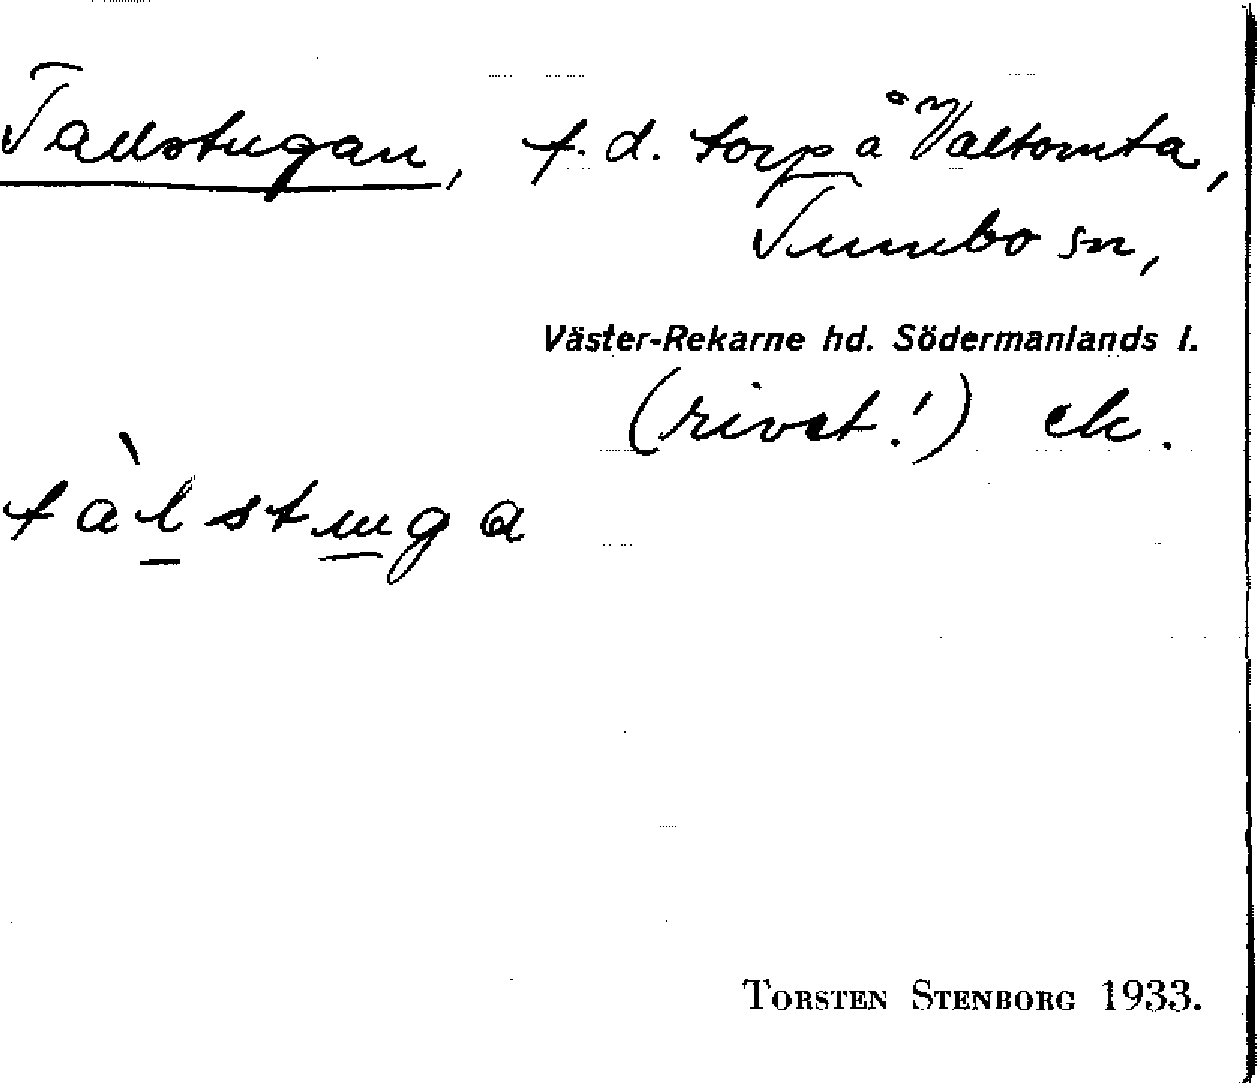 Tallstugan, f.d. torp å Valtomta,
Tumbo sn,
Väster-Rekarne hd. Södermanlands l.
(rivet!) ek.
tàlstuga
TORSTEN STENBORG 1933.